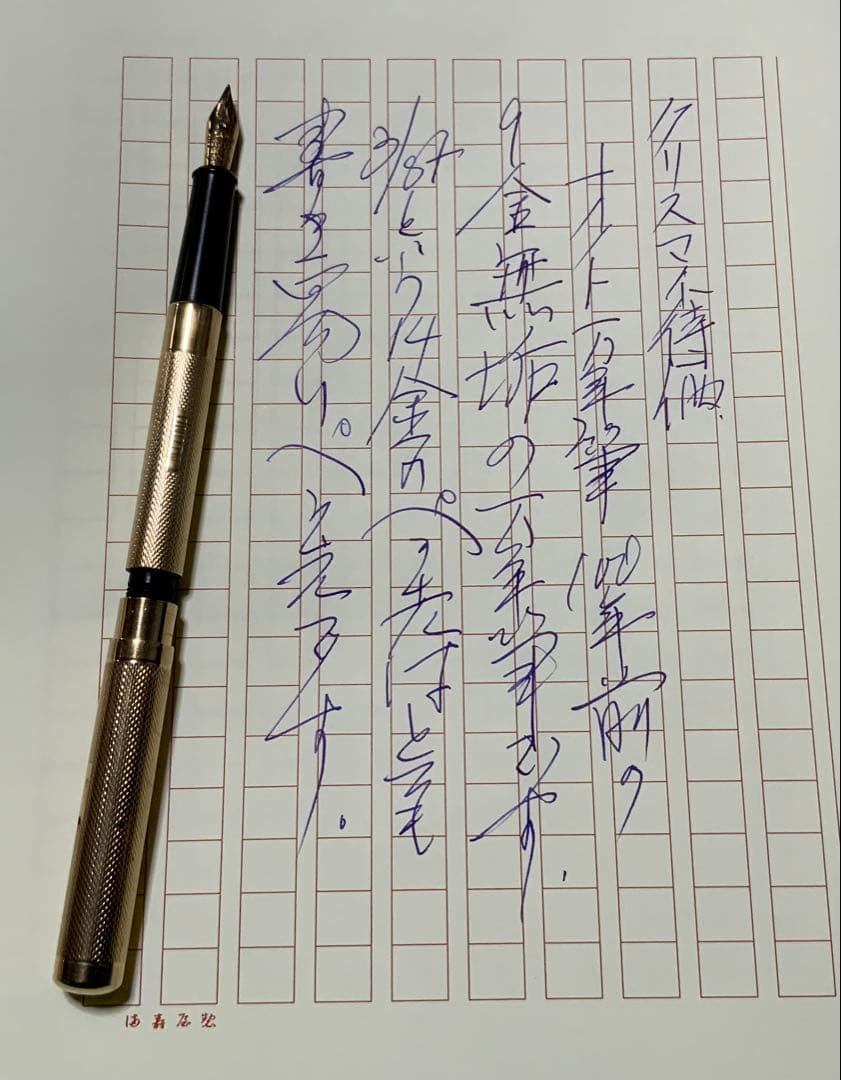 クリスマス特価
オノト万年筆 100年前の
9金無垢の万年筆です.
3/87という14金ペン先はとても
書き易いペン先です.